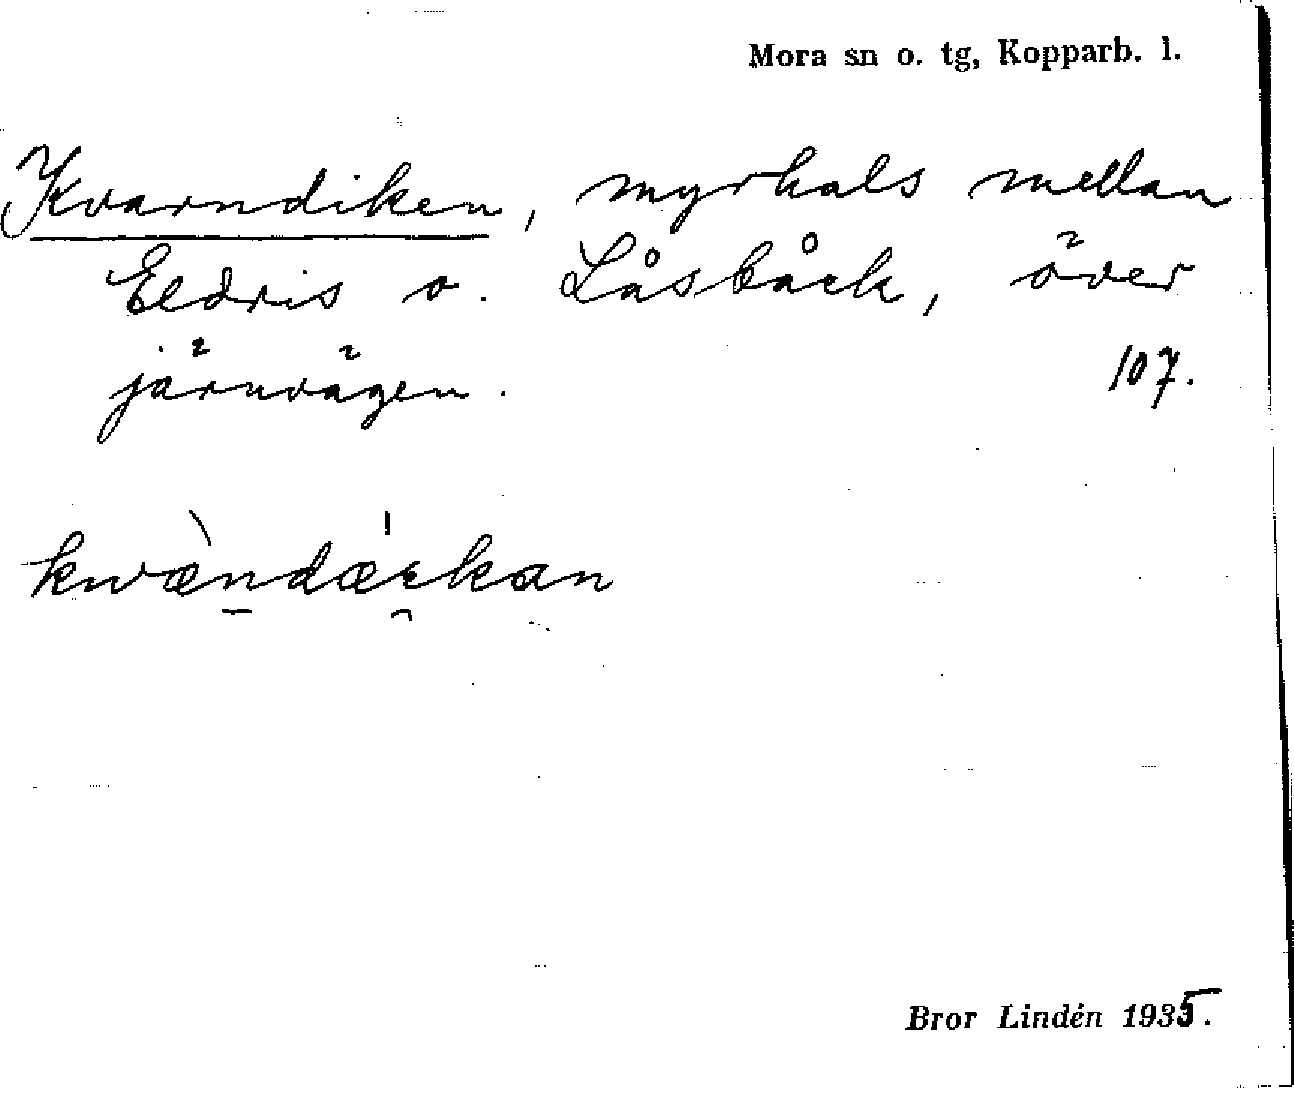 Mora sn o. tg, Kopparb. l.
Kvarndiken, myrhals mellan
Eldris o. Låsbåck, över
järnvägen. 107.
Bror Lindén 1935.